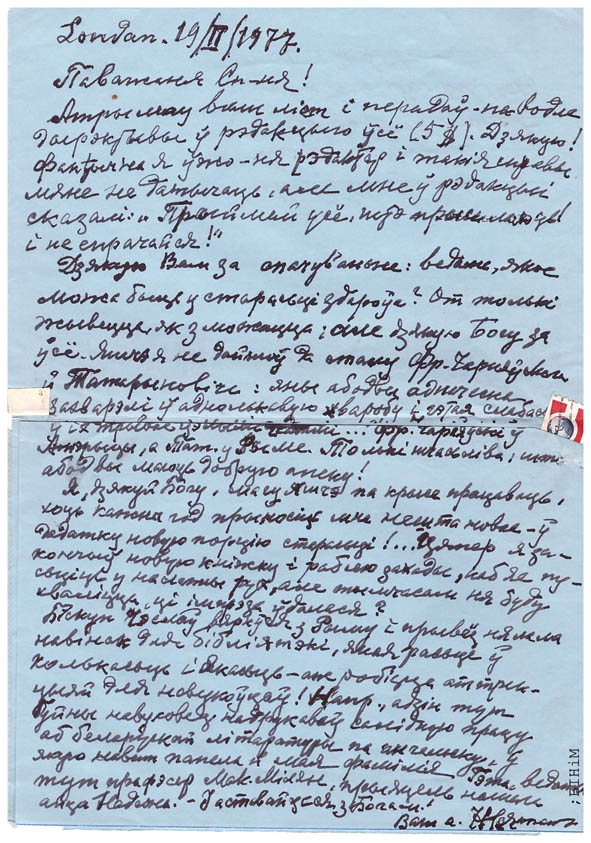 London. 19/III/1977.
Паважаная Сп-ня!
Атрымаў ваш ліст і перадаў - паводле
дырэктывы ў рэдакцыю ўсё (5 $). Дзякую!
Фактычна я ўжо - ня рэдактар і такія справы
мяне не датычаць, але мне ў рэдакцыі
сказалі: „Прыймай усё, што
і не спрачайся!"
Дзякую Вам за спачуваньне: ведама, якое
можа быць у старасьці здароўе? От толькі
жывецца, як зможацца; але дзякуй Богу за
ўсё. Яшчэ я не дайшоў да стану Фр. Чарняўскага
й Татарыновіча: яны абодвы адначасна
захварэлі ў аднолькавую хваробу і гэтая слабасць
у іх трывае ... Фр. Чарняўскі ў
Амэрыцы, а Тат. у Рыме. Толькі шчасьліва, што
абодвы маюць добрую апеку!
Я, дзякуй Богу, магу яшчэ па крысе працаваць,
хоць кажны год прыносіць мне нешта новае - ў
дадатку новую порцыю стараcьці!... Цяпер я за-
кончыў новую кніжку і раблю захады, каб яе пу-
сьціць у наступны рух, але тымчасам ня буду
хваліцца, ці імпрэза ўдалася?
Біскуп Чэслаў вярнуўся з Рыму і прывёз нямала
навінак для бібліятэкі, якая расьце ў
колькасьць і якасьць - аж робіцца аттрак-
цыяй для навукоўцаў! Напр., адзін тут
буйны навуковец надрукаваў салідную працу
аб беларускай літаратуры па ангельску, у
якую навет папала й мая фамілія. Гэта, ведама,
тут прафэсар Мак-Мілян, прыяцель нашага
айца Надсана. - Заставайцеся з Богам!
Ваш а.